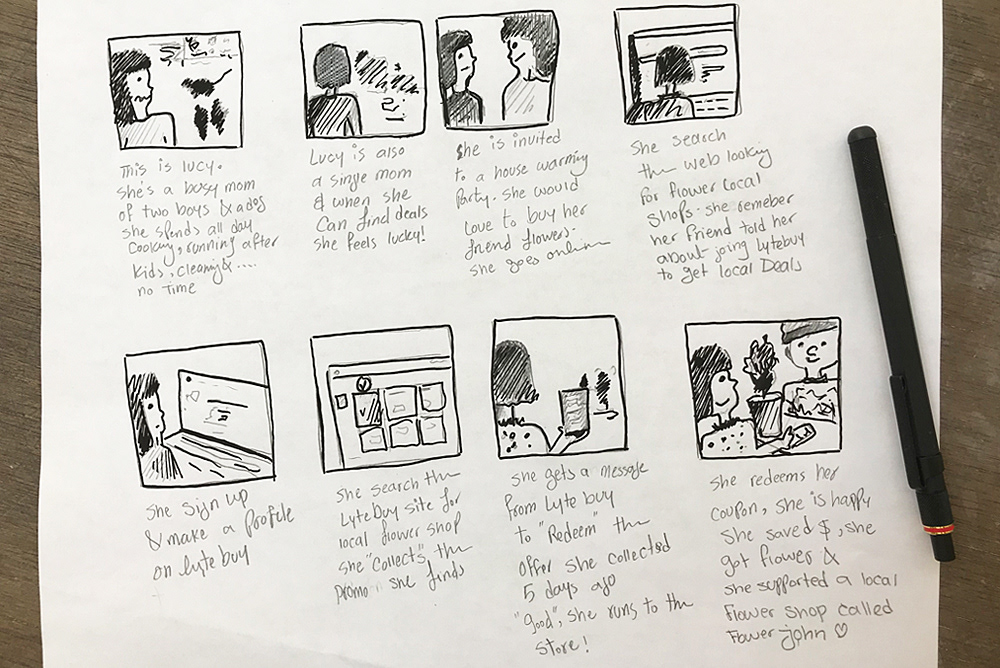 This is lucy.
she's a busy mom
of two boys & a dog
she spends all day
cooking, running after
kids, cleaning & ....
no time
Lucy is also
a single mom
& when she
can find deals
she feels lucky!
she is invited
to a house warming
Party. she would
Love to buy her
friend flowers.
she goes online
She search
the web looking
For flower local
shops. she remeber
her Friend told her
about joing Lytebuy
to get local Deals
she sign up
& make a profile
on lyte buy
she search the
Lytebuy site for
local flower shop
she "Collects" the
promo she finds
she gets a message
From Lyte buy
to "Redeem" the
offer she collected
5 days ago
"good", she runs to the
store!
she redeems her
coupon, she is happy
she saved $, she
got flower &
she supported a local
Flower shop called
Flower-john ♡